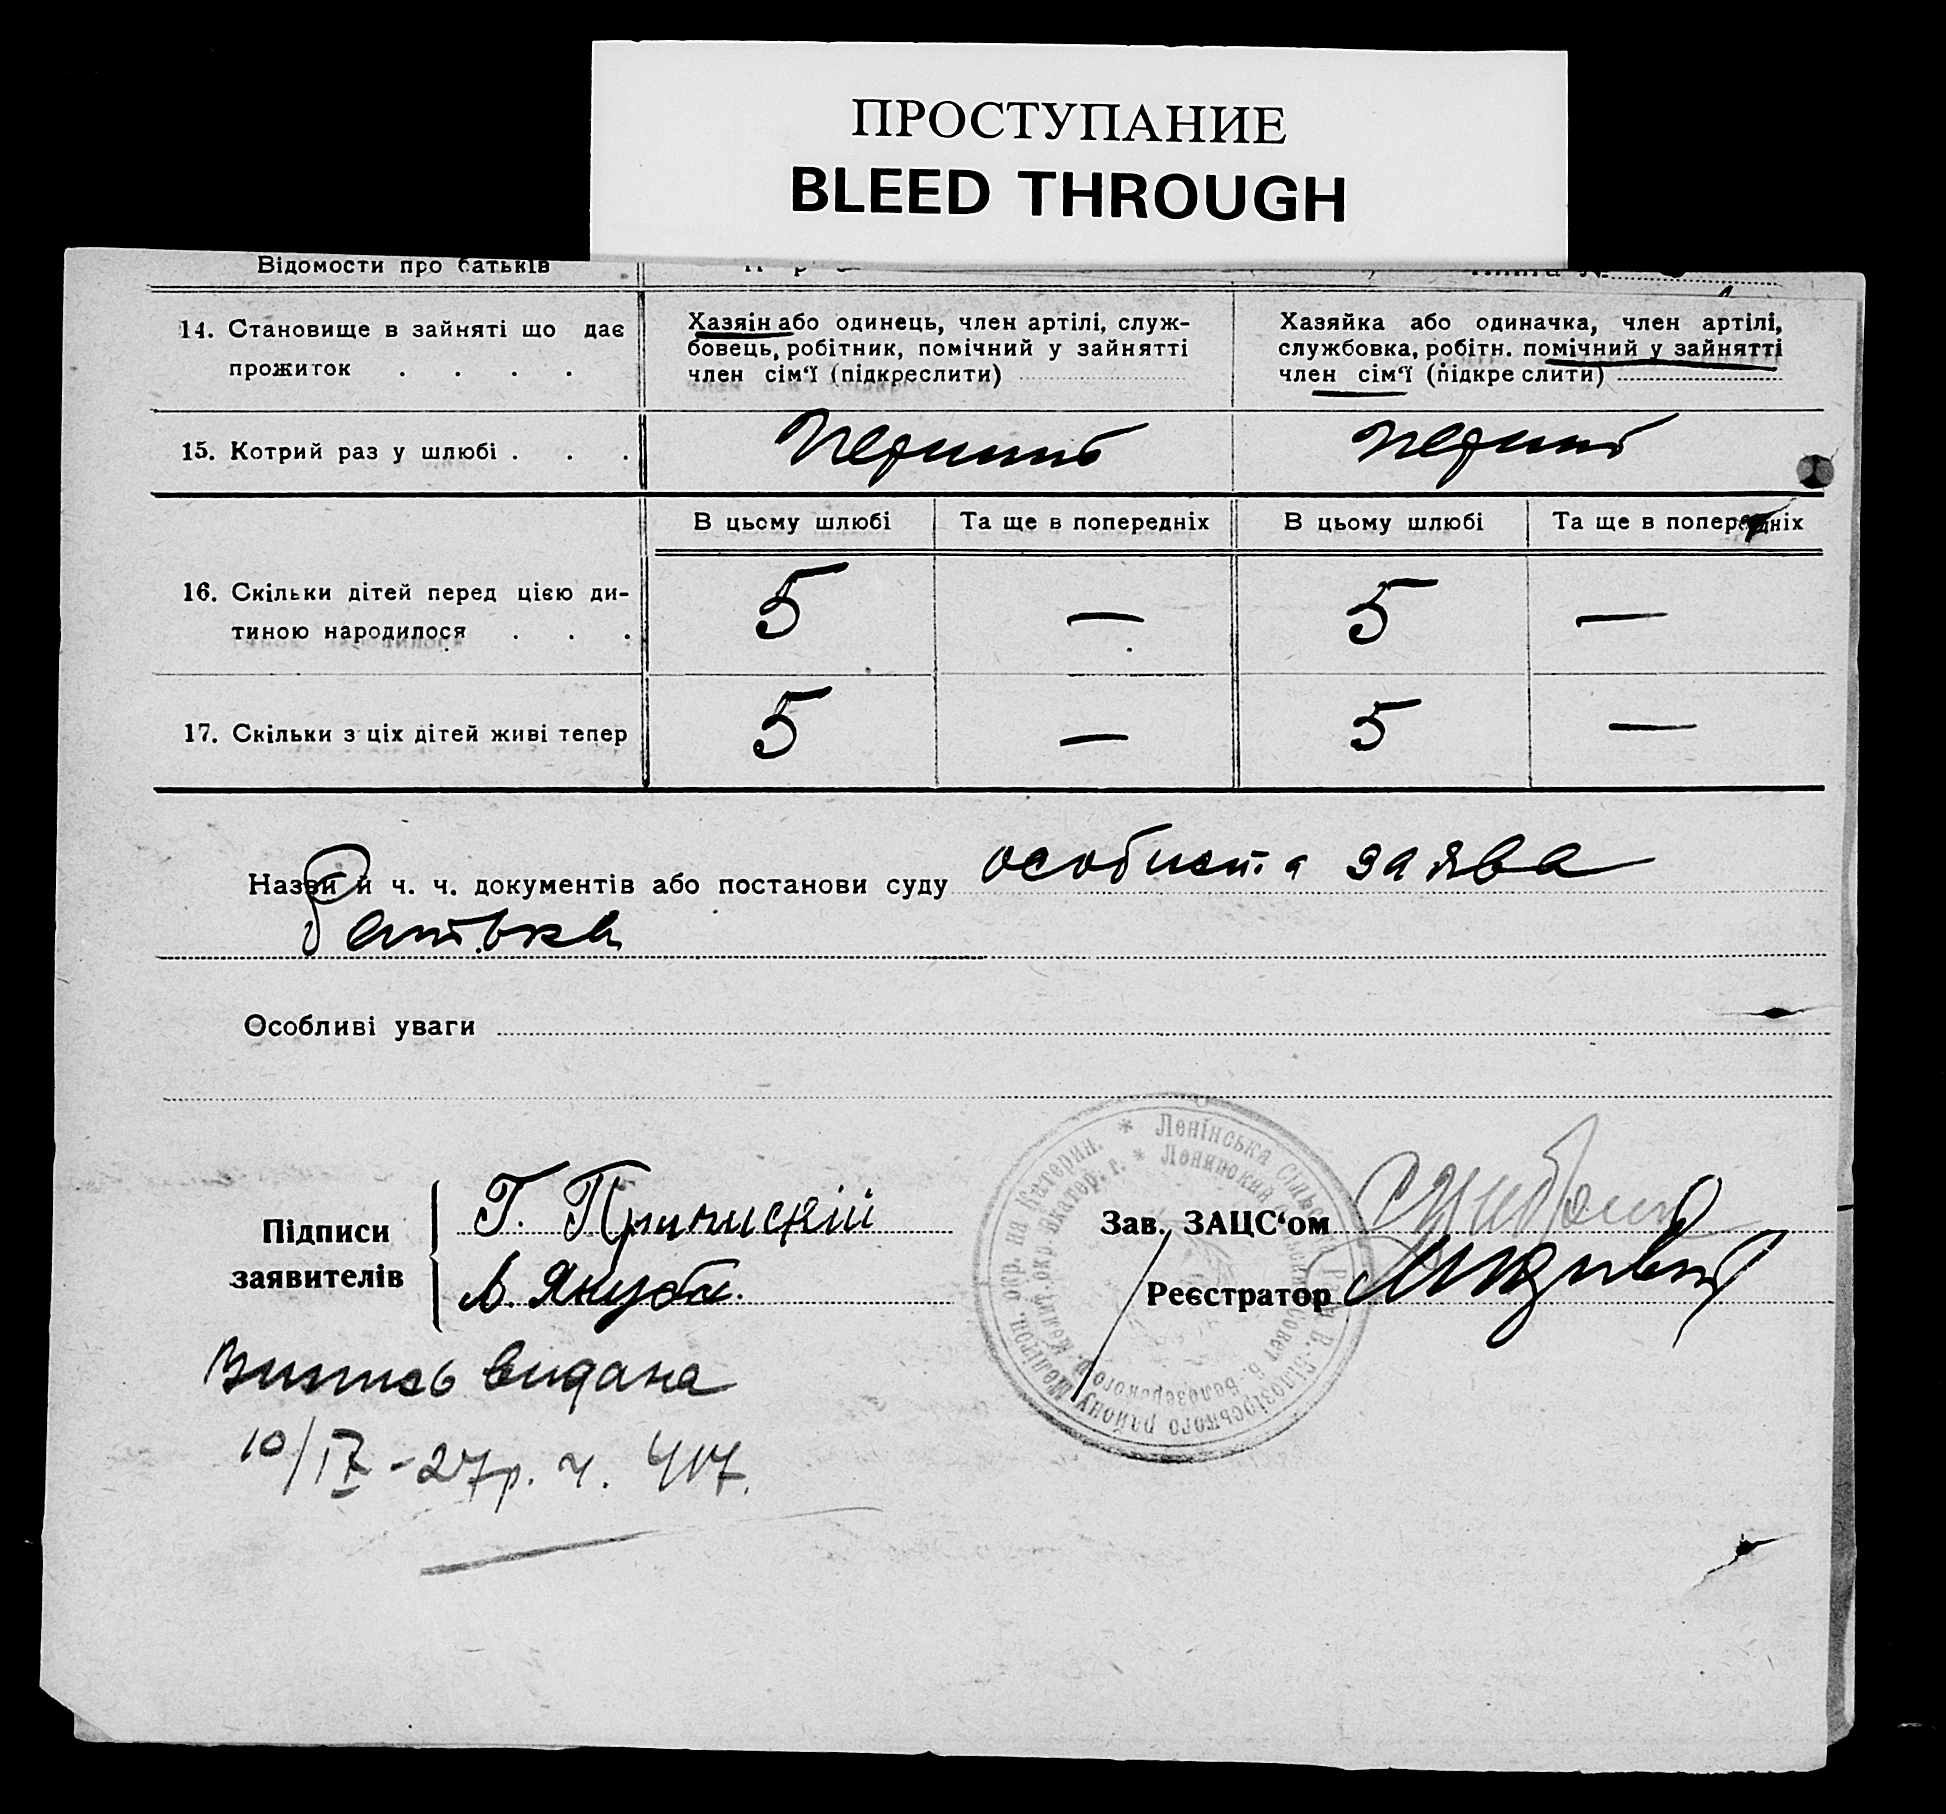 ПРОСТУПАНИЕ
BLEED THROUGH
Відомости про батьків
14. Становище в зайняті що дає
прожиток . . . .
Хазяін або одинець, член артілі, служ-
бовець, робітник, помічний у зайнятті
член сім'ї (підкреслити)
Хазяйка або одиначка, член артілі,
службовка, робітн. помічний у зайнятті
член сім'ї (підкреслити)
15. Котрий раз у шлюбі . . .
перший
перший
В цьому шлюбі
Та ще в попередніх
В цьому шлюбі
Та ще в попередніх
16. Скільки дітей перед цією ди-
тиною народилося . . .
5 — 5 —
17. Скільки з ціх дітей живі тепер
5 — 5 —
Назви й ч. ч. документів або постанови суду особиста заява
батька
Особливі уваги
Підписи
заявителів
Г.
Зав. ЗАЦС'ом
Реєстратор
Ленінська сільська Рада В.-Білозірського району Мелітоп. окр. на Катерин.
Випись видана
10/IV-27р. ч. 417.